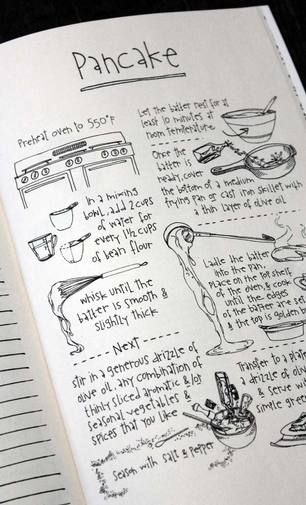 Pancake
Preheat oven to 550°F
In a mixing
bowl, add 2 cups
of water for
every 1 1/2 cups
of bean flour
whisk until the
batter is smooth &
slightly thick
Next
stir in a generous drizzle of
olive oil, any combination of
thinly sliced aromatic &/or
seasonal vegetables &
spices that you like
season with salt & pepper
Let the batter rest for at
least 10 minutes at
room temperature
Once the
batter is
ready, cover
the bottom of a medium
frying pan or cast iron skillet with
a thin layer of olive oil
Ladle the batter
into the pan,
Place on the top shelf
of the oven, & cook
until the edges
of the batter are
& the top is golden
Transfer to a
a drizzle of
& serve
simple